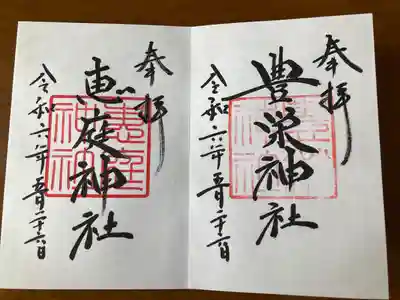 奉拝
豊栄神社
令和六年五月二十六日
奉拝
恵庭神社
令和六年五月二十六日